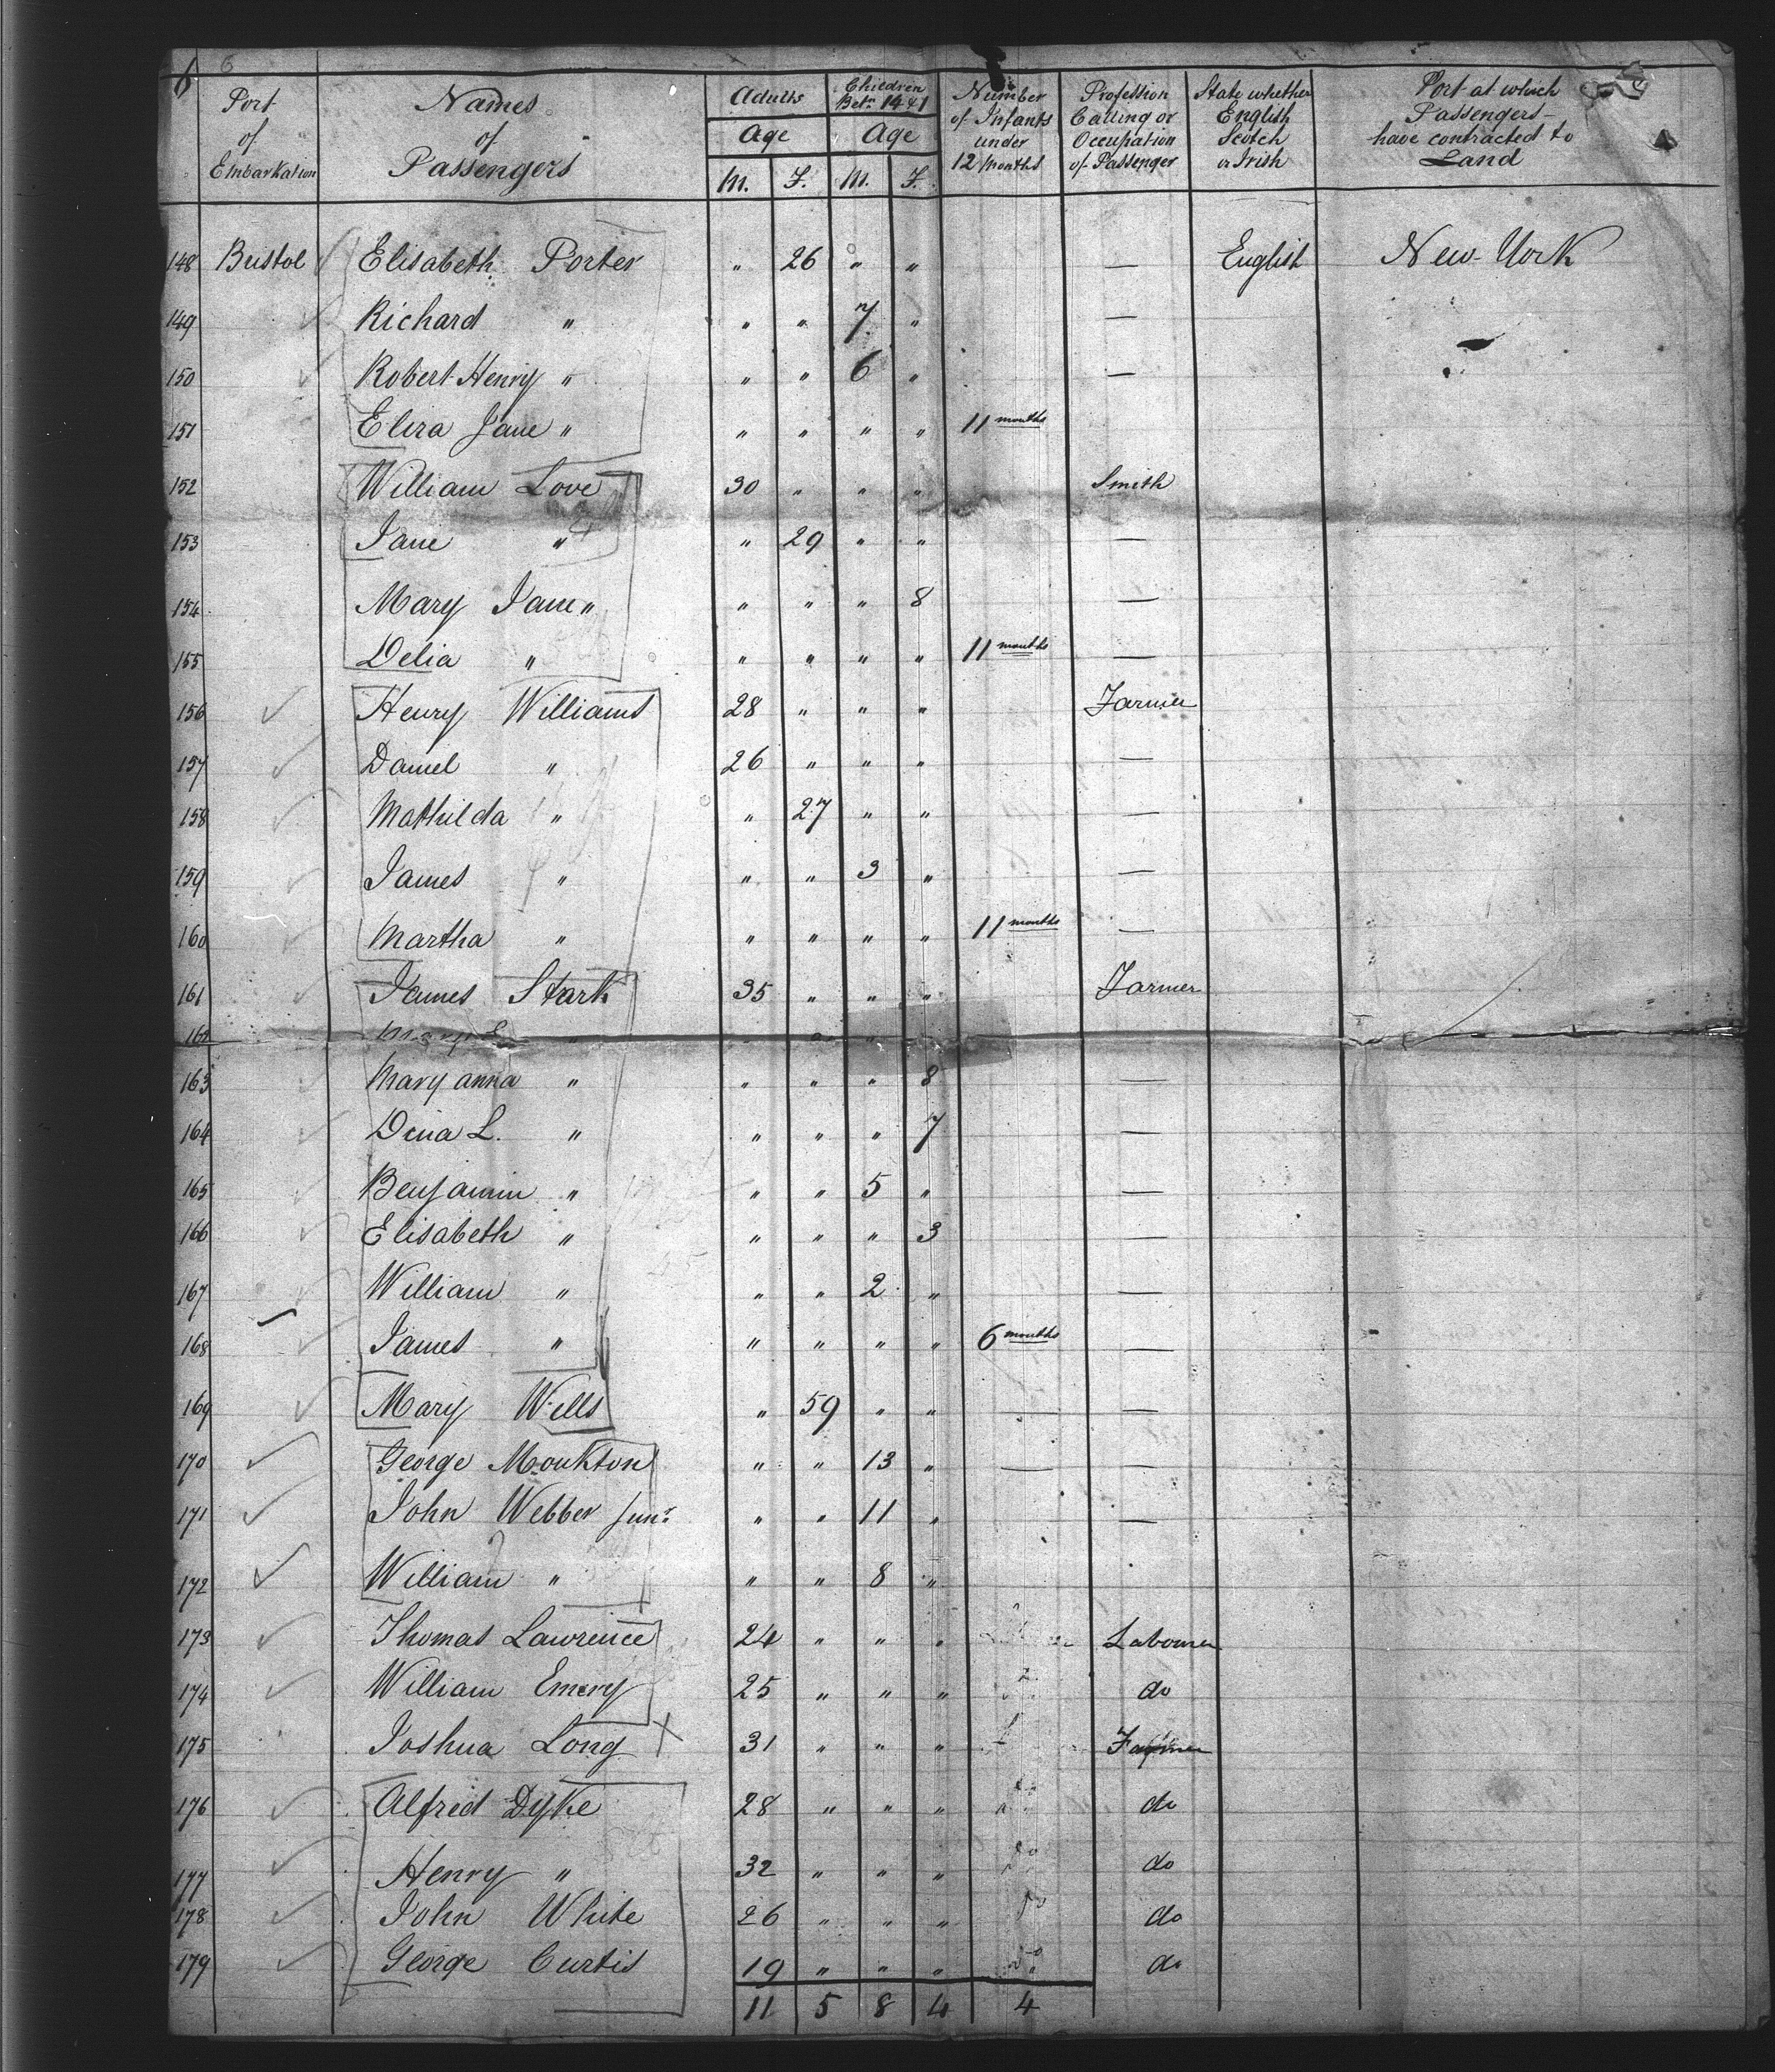 6 6
Port of Embarkation Names of Passengers Adults Age M. F. Children Betn 14 & 1 Age M. F. Number of Infants under 12 Months Profession Calling or Occupation of Passenger State whether English Scotch or Irish Port at which Passengers have contracted to Land
148 Bristol Elisabeth Porter " 26 " " — English New York
149 Richard " " " 7 " —
150 Robert Henry " " " 6 " —
151 Eliza Jane " " " " " 11 months
152 William Love 30 " " " Smith
153 Jane " " 29 " " —
154 Mary Jane " " " " 8 —
155 Delia " " " " " 11 months —
156 Henry Williams 28 " " " Farmer
157 Daniel " 26 " " " —
158 Mathilda " " 27 " " —
159 James " " " 3 " —
160 Martha " " " " " 11 months —
161 James Stark 35 " " " Farmer
162 Mary " "
163 Mary anna " " " " 8 —
164 Dina L. " " " " 7 —
165 Benjamin " " " 5 " —
166 Elisabeth " " " " 3 —
167 William " " " 2 " —
168 James " " " " " 6 months —
169 Mary Wells " 59 " " — —
170 George Monkton " " 13 " — —
171 John Webber Junr " " 11 " —
172 William " " " 8 "
173 Thomas Lawrence 24 " " " Labourer
174 William Emery 25 " " " do
175 Joshua Long X 31 " " " Farmer
176 Alfred Dyke 28 " " " do
177 Henry " 32 " " " do
178 John White 26 " " " do
179 George Curtis 19 " " " do
11 5 8 4 4